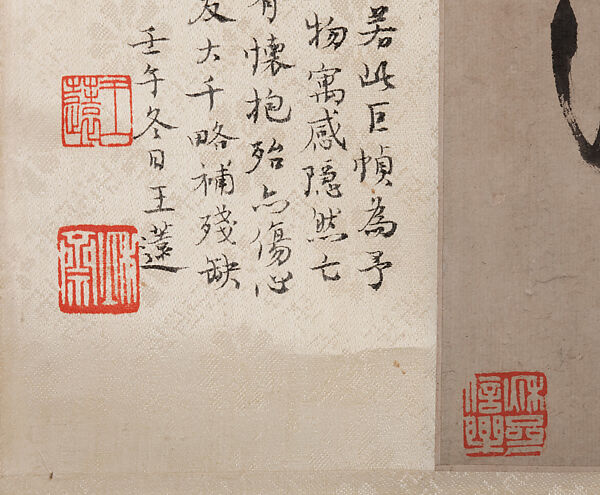 若此巨幀為予
物寓感隱然亡
有懷抱殆亦傷心
友大千略補殘缺
壬午冬日王薳